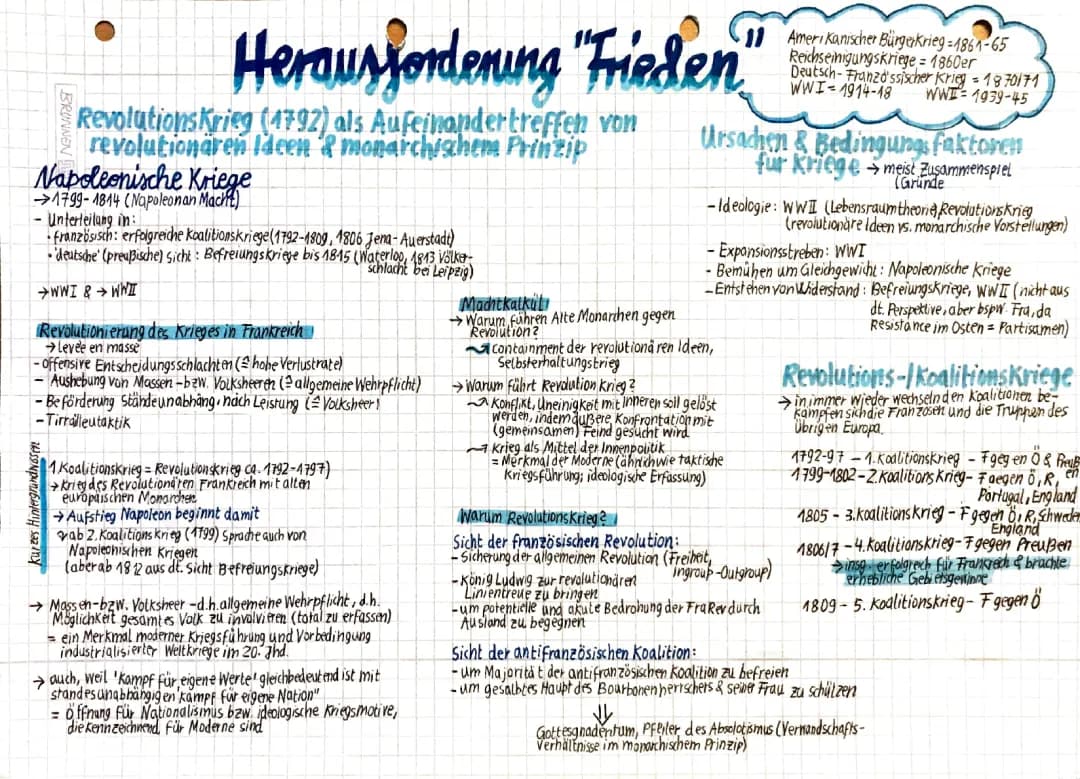 Herausforderung "Frieden"
Amerikanischer Bürgerkrieg=1861-65
Reichseinigungskriege = 1860er
Deutsch-Französsischer Krieg = 1870/71
WWI = 1914-18 WWII = 1939-45
BRUNNEN
Revolutionskrieg (1792) als Aufeinandertreffen von
revolutionären Ideen & monarchischem Prinzip
Napoleonische Kriege
→1799-1814 (Napoleon an Macht)
- Unterteilung in:
• französisch: erfolgreiche Koalitionskriege (1792-1809, 1806 Jena-Auerstadt)
• 'deutsche' (preußische) Sicht: Befreiungskriege bis 1815 (Waterloo, 1813 Völker-
schlacht bei Leipzig)
→WWI & → WWII
Revolutionierung des Krieges in Frankreich
→ Levée en masse
- offensive Entscheidungsschlachten (≙ hohe Verlustrate)
- Aushebung von Massen- bzw. Volksheeren (≙ allgemeine Wehrpflicht)
- Beförderung Ständeunabhäng., nach Leistung (≙ Volksheer)
- Tirrailleutaktik
Kurzes Hintergrundwissen
1. Koalitionskrieg = Revolutionskrieg ca. 1792-1797)
→ Krieg des Revolutionären Frankreich mit alten
europäischen Monarchen
→ Aufstieg Napoleon beginnt damit
ab 2. Koalitionskrieg (1799) Sprache auch von
Napoleonischen Kriegen
(aber ab 1812 aus dt. Sicht Befreiungskriege)
→ Massen- bzw. Volksheer - d.h. allgemeine Wehrpflicht, d.h.
Möglichkeit gesamtes Volk zu involvieren (total zu erfassen)
= ein Merkmal moderner Kriegsführung und Vorbedingung
industrialisierter Weltkriege im 20. Jhd.
→ auch, weil 'Kampf für eigene Werte' gleichbedeutend ist mit
standesunabhängigen „Kampf für eigene Nation"
= Öffnung für Nationalismus bzw. ideologische Kriegsmotive,
die kennzeichnend für Moderne sind
Machtkalkül
→ Warum führen Alte Monarchen gegen
Revolution?
↝ containment der revolutionären Ideen,
Selbsterhaltungstrieg
→ Warum führt Revolution Krieg?
↝ Konflikt, Uneinigkeit mit Inneren soll gelöst
werden, indem äußere Konfrontation mit
(gemeinsamen) Feind gesucht wird
↝ Krieg als Mittel der Innenpolitik
= Merkmal der Moderne (ähnlich wie taktische
Kriegsführung; ideologische Erfassung)
Warum Revolutionskrieg?
Sicht der französischen Revolution:
- Sicherung der allgemeinen Revolution (Freiheit,
Ingroup-Outgroup)
- König Ludwig zur revolutionären
Linientreue zu bringen
- um potentielle und akute Bedrohung der Fra Rev durch
Ausland zu begegnen
Sicht der antifranzösischen Koalition:
- um Majorität der antifranzösischen Koalition zu befreien
- um gesalbtes Haupt des Bourbonenherrschers & seiner Frau zu schützen
⇓
Gottesgnadentum, Pfeiler des Absolotismus (Verwandschafts-
verhältnisse im monarchischem Prinzip)
Ursachen & Bedingungsfaktoren
für Kriege → meist Zusammenspiel
(Gründe
- Ideologie: WWII (Lebensraumtheorie), Revolutionskrieg
(revolutionäre Ideen vs. monarchische Vorstellungen)
- Expansionsstreben: WWI
- Bemühen um Gleichgewicht: Napoleonische Kriege
- Entstehen von Widerstand: Befreiungskriege, WWII (nicht aus
dt. Perspektive, aber bspw. Fra, da
Resistance im Osten = Partisamen)
Revolutions-/Koalitionskriege
→ in immer wieder wechselnden Koalitionen be-
kämpfen sich die Franzosen und die Truppen des
übrigen Europa.
1792-97 - 1. Koalitionskrieg - F gegen Ö & Preußen
1799-1802 - 2. Koalitions Krieg - F gegen Ö, R,
Portugal, England
1805 - 3. Koalitionskrieg - F gegen Ö, R, Schweden
England
1806/7 - 4. Koalitionskrieg - F gegen Preußen
→ insg. erfolgrech für Frankreich & brachte
erhebliche Gebietsgewinne
1809 - 5. Koalitionskrieg - F gegen Ö